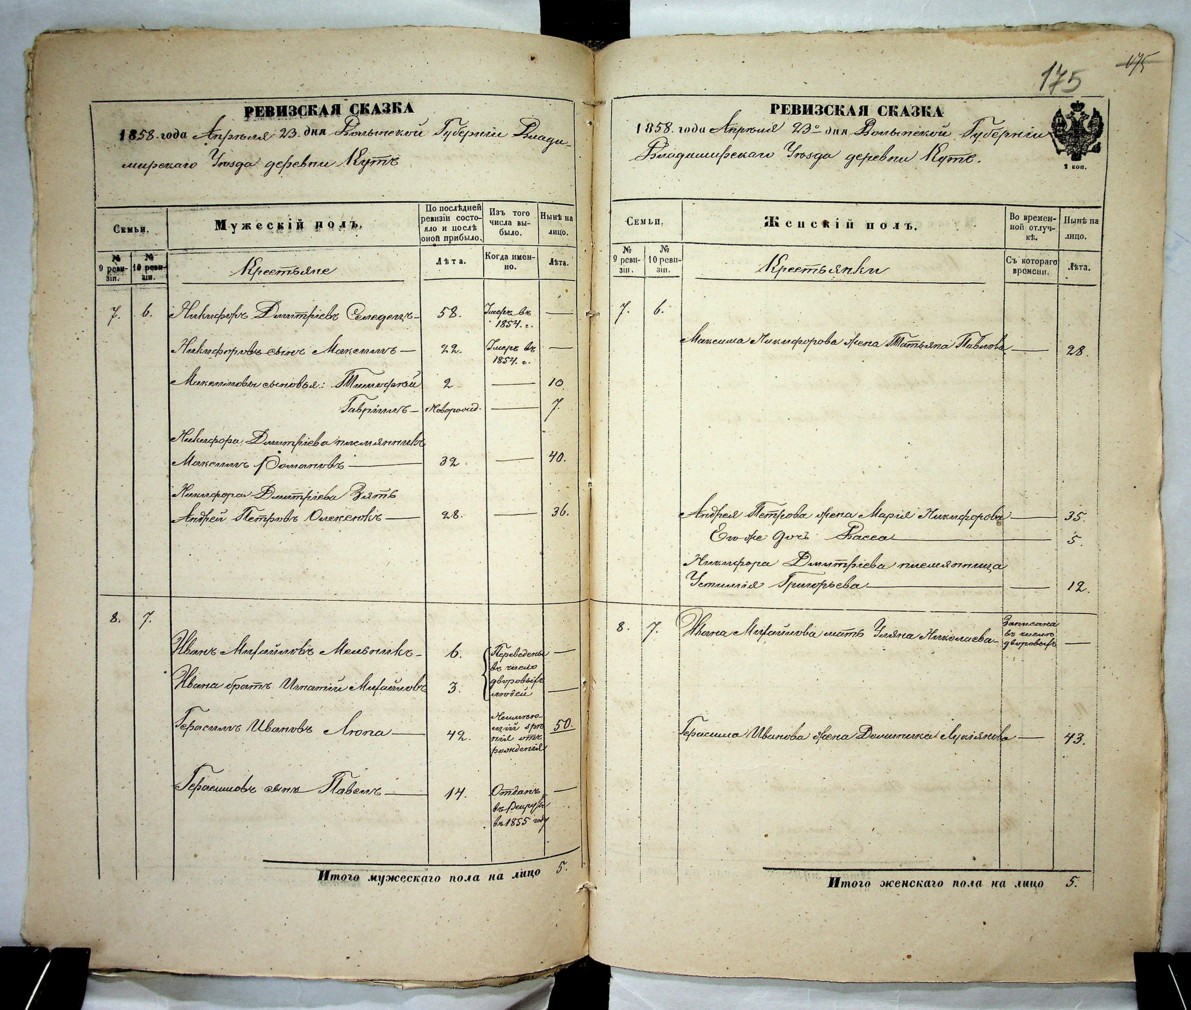 175
175
РЕВИЗСКАЯ СКАЗКА
1858. года Апрѣля 23. дня Волынской Губерніи Влади-
мирскаго Уѣзда деревни Кутъ
Семьи.
Мужескій полъ.
По послѣдней
ревизіи состо-
яло и послѣ
оной прибыло.
Изъ того
числа вы-
было.
Нынѣ на
лицо.
№
9 реви-
зіи.
№
10 реви-
зіи.
Крестьяне
Лѣта.
Когда имен-
но.
Лѣта.
7. 6. Никифоръ Дмитріевъ Селедецъ — 58. Умеръ въ
1854. г. —
Никифоровъ сынъ Максимъ — 22. Умеръ въ
1854. г. —
Максимовы сыновья: Тимофей 2 — 10.
Гавріилъ — Новорожд. — 7.
Никифора Дмитріева племянникъ
Максимъ Романовъ — 32 — 40.
Никифора Дмитріева Зять
Андрей Петровъ Олексюкъ — 28. — 36.
8. 7.
Иванъ Михайловъ Мельникъ — 6. Переведены
въ число
дворовыхъ
людей —
Ивана братъ Игнатій Михайловъ 3. —
Герасимъ Ивановъ Лопа — 42. 50.
рожденія
Герасимовъ сынъ Павелъ — 14. Отданъ
въ Рекруты
въ 1855 году —
Итого мужескаго пола на лицо 5.
РЕВИЗСКАЯ СКАЗКА
1858. года Апрѣля 23. дня Волынской Губерніи
Владимирскаго Уѣзда деревни Кутъ.
2 коп.
Семьи.
Женскій полъ.
Во времен-
ной отлуч-
кѣ.
Нынѣ на
лицо.
№
9 реви-
зіи.
№
10 реви-
зіи.
Крестьянки
Съ котораго
времени.
Лѣта.
7. 6.
Максима Никифорова жена Татьяна Павлова — 28.
Андрея Петрова жена Марія Никифорова — 35.
Его же дочь Васса — 5.
Никифора Дмитріева племянница
Устимія Григорьева — 12.
8. 7. Ивана Михайлова мать Уляна Николаева — Записана
въ число
дворовыхъ —
Герасима Иванова жена Доминика Лукіянова — 43.
Итого женскаго пола на лицо 5.